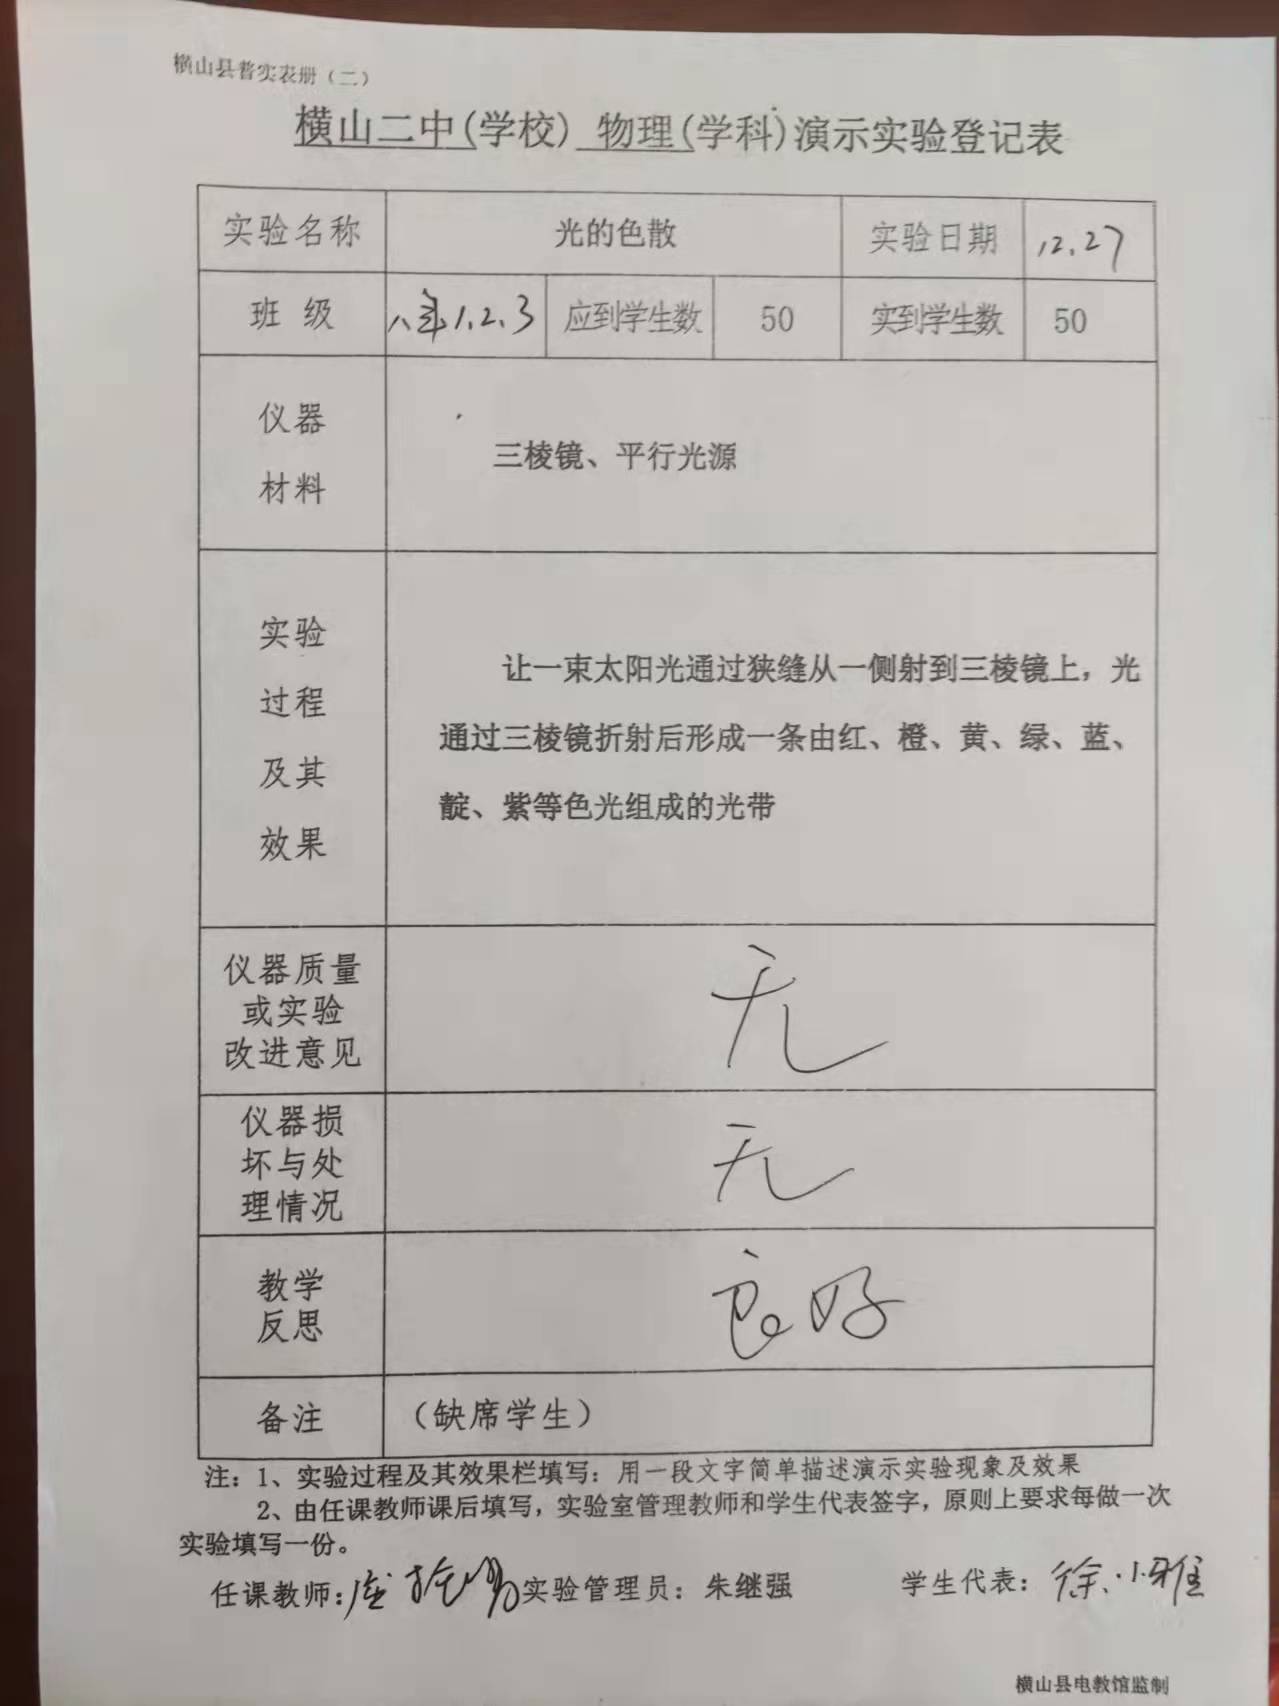 横山县普实表册（二）
横山二中(学校) 物理(学科)演示实验登记表
实验名称 光的色散 实验日期 12.27
班 级 八年1.2.3 应到学生数 50 实到学生数 50
仪器
材料
三棱镜、平行光源
实验
过程
及其
效果
让一束太阳光通过狭缝从一侧射到三棱镜上，光
通过三棱镜折射后形成一条由红、橙、黄、绿、蓝、
靛、紫等色光组成的光带
仪器质量
或实验
改进意见
无
仪器损
坏与处
理情况
无
教学
反思
良好
备注 （缺席学生）
注：1、实验过程及其效果栏填写：用一段文字简单描述演示实验现象及效果
2、由任课教师课后填写，实验室管理教师和学生代表签字，原则上要求每做一次
实验填写一份。
任课教师: 实验管理员：朱继强 学生代表：徐小雅
横山县电教馆监制